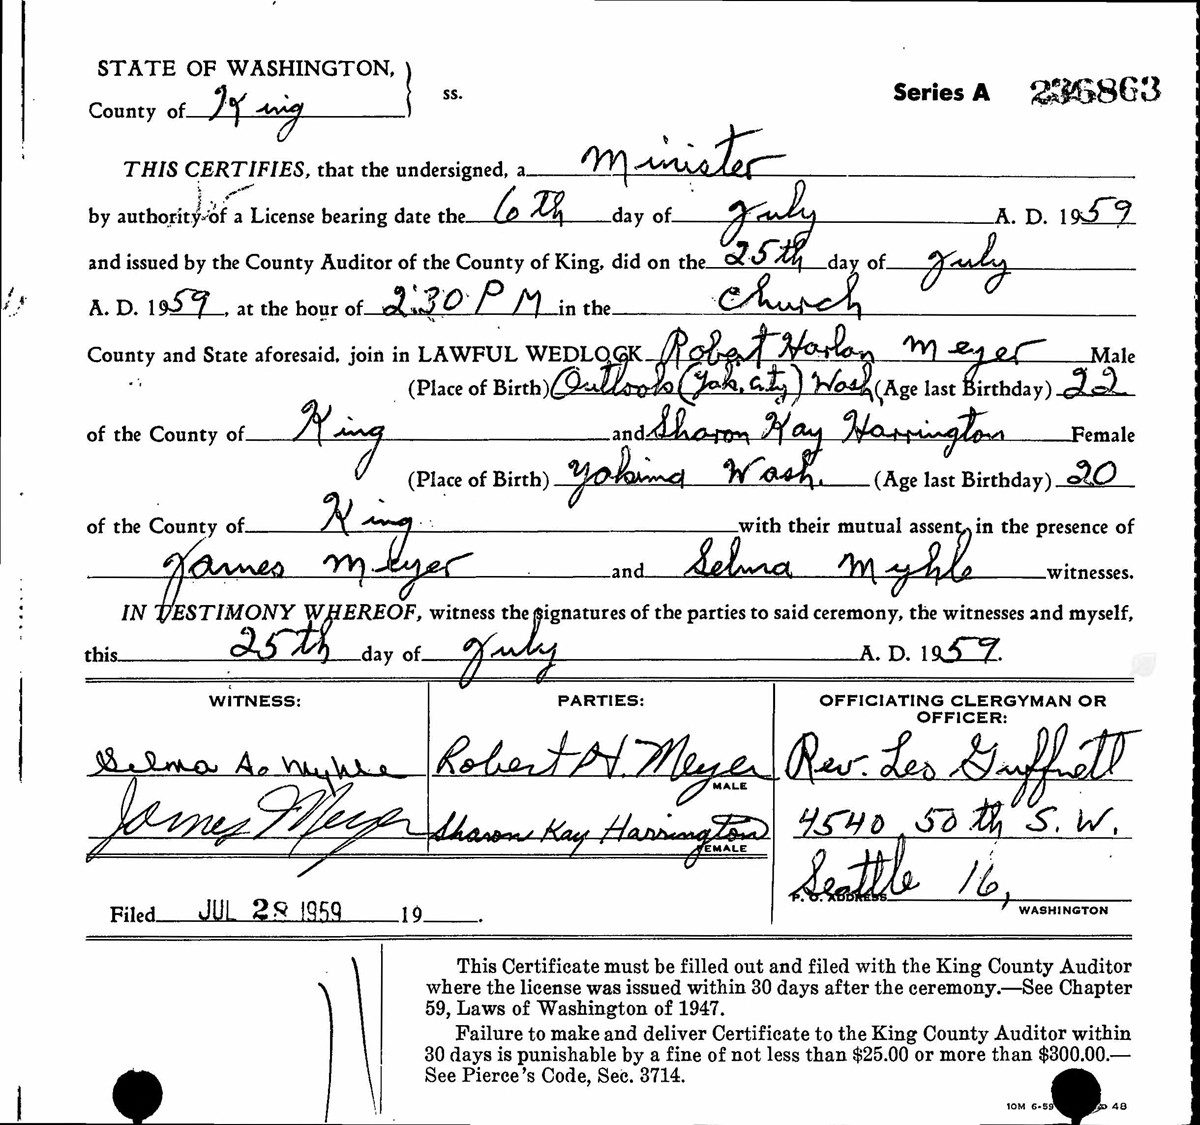 STATE OF WASHINGTON,
County of King ss.
Series A 236863
THIS CERTIFIES, that the undersigned, a Minister
by authority of a License bearing date the 6th day of July A. D. 1959
and issued by the County Auditor of the County of King, did on the 25th day of July
A. D. 1959, at the hour of 2:30 PM in the church
County and State aforesaid, join in LAWFUL WEDLOCK Robert Harlan Meyer Male
(Place of Birth) Outlook (Yak. City) Wash. (Age last Birthday) 22
of the County of King and Sharon Kay Harrington Female
(Place of Birth) Yakima Wash. (Age last Birthday) 20
of the County of King with their mutual assent, in the presence of
James Meyer and Selma Myhle witnesses.
IN TESTIMONY WHEREOF, witness the signatures of the parties to said ceremony, the witnesses and myself,
this 25th day of July A. D. 1959.
WITNESS:
Selma A. Myhle
James Meyer
Filed JUL 28 1959 19 .
PARTIES:
Robert H. Meyer
MALE
Sharon Kay Harrington
FEMALE
OFFICIATING CLERGYMAN OR
OFFICER:
Rev. Leo
4540 50th S. W.
Seattle 16,
P. O. ADDRESS WASHINGTON
This Certificate must be filled out and filed with the King County Auditor
where the license was issued within 30 days after the ceremony.—See Chapter
59, Laws of Washington of 1947.
Failure to make and deliver Certificate to the King County Auditor within
30 days is punishable by a fine of not less than $25.00 or more than $300.00.—
See Pierce's Code, Sec. 3714.
10M 6-59 48